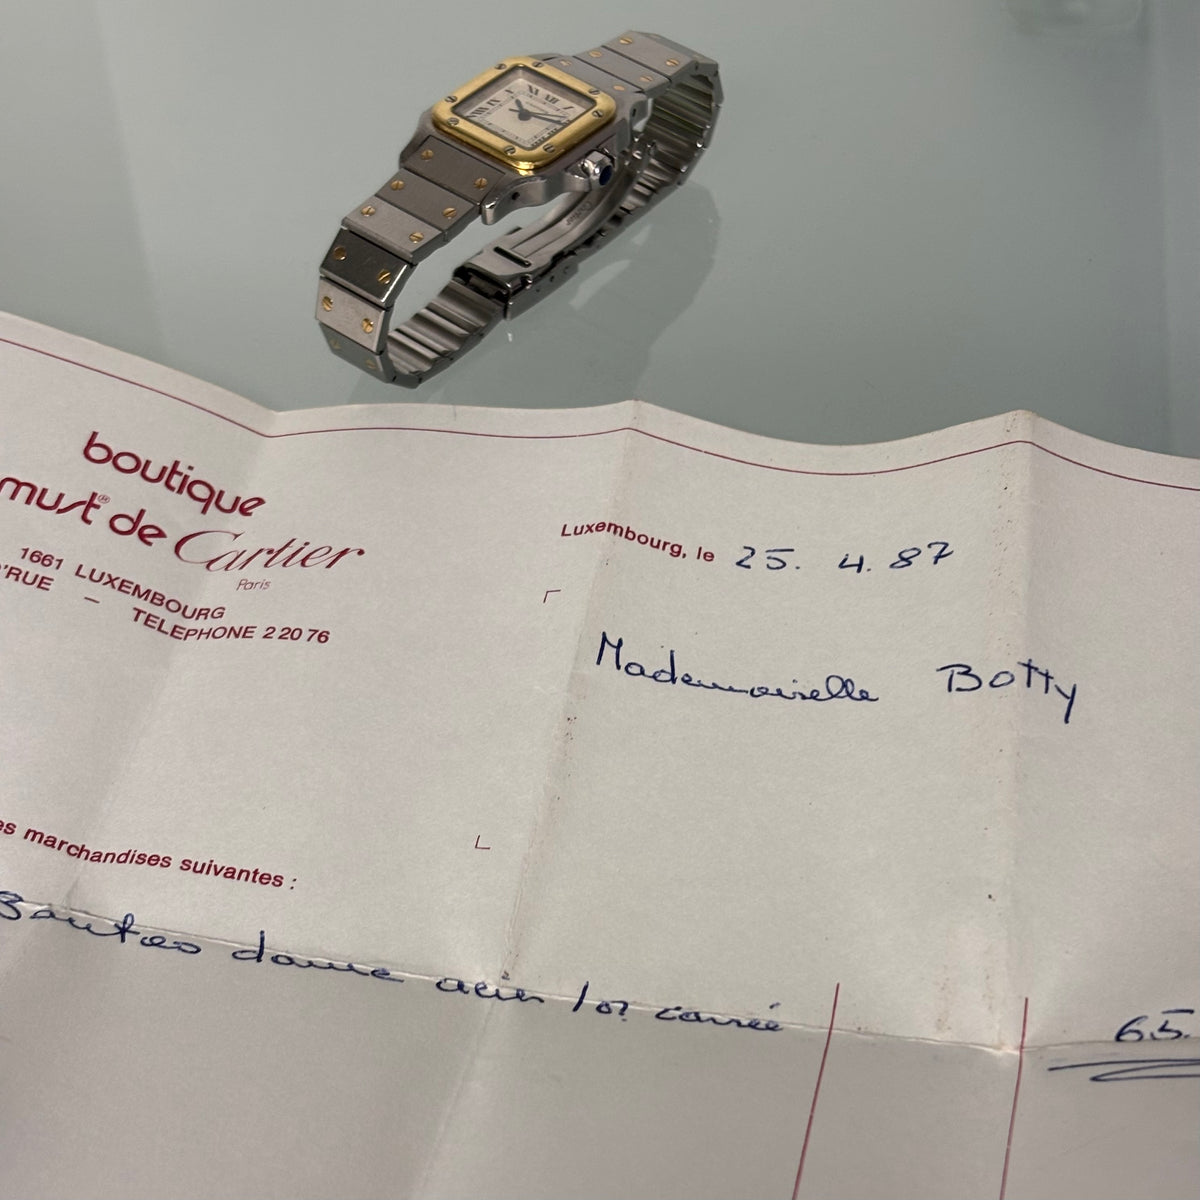 boutique
must® de Cartier
Paris
1661 LUXEMBOURG
D'RUE — TELEPHONE 2 20 76
Luxembourg, le 25. 4. 87
Mademoiselle Botty
es marchandises suivantes :
Santos dame acier / or carrée 65.
Cartier